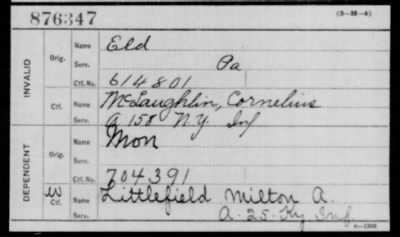 876347
(3-H-4)
INVALID
Orig.
Name Eld
Serv. Pa
Ctf. No. 614801
Ctf.
Name McLaughlin, Cornelius
Serv. A 158 N.Y. Inf
DEPENDENT
Orig.
Name Mon
Serv.
Ctf. No. 704391
W
Ctf.
Name Littlefield Milton A.
Serv. A-25-Ky Inf.